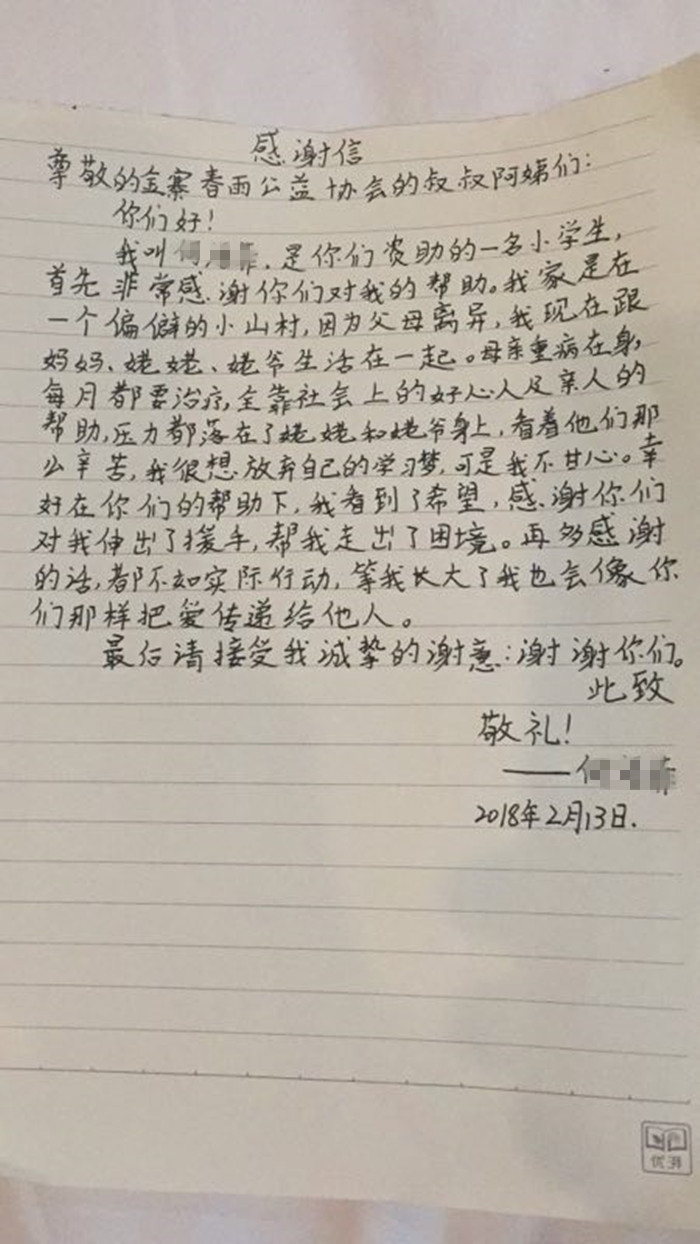 感谢信
尊敬的金寨春雨公益协会的叔叔阿姨们：
你们好！
我叫 是你们资助的一名小学生，
首先非常感谢你们对我的帮助。我家是在
一个偏僻的小山村，因为父母离异，我现在跟
妈妈、姥姥、姥爷生活在一起。母亲重病在身，
每月都要治疗，全靠社会上的好心人及亲人的
帮助，压力都落在了姥姥和姥爷身上，看着他们那
么辛苦，我很想放弃自己的学习梦，可是我不甘心。幸
好在你们的帮助下，我看到了希望，感谢你们
对我伸出了援手，帮我走出了困境。再多感谢
的话，都不如实际行动，等我长大了我也会像你
们那样把爱传递给他人。
最后请接受我诚挚的谢意：谢谢你们。
此致
敬礼！
——
2018年2月13日.